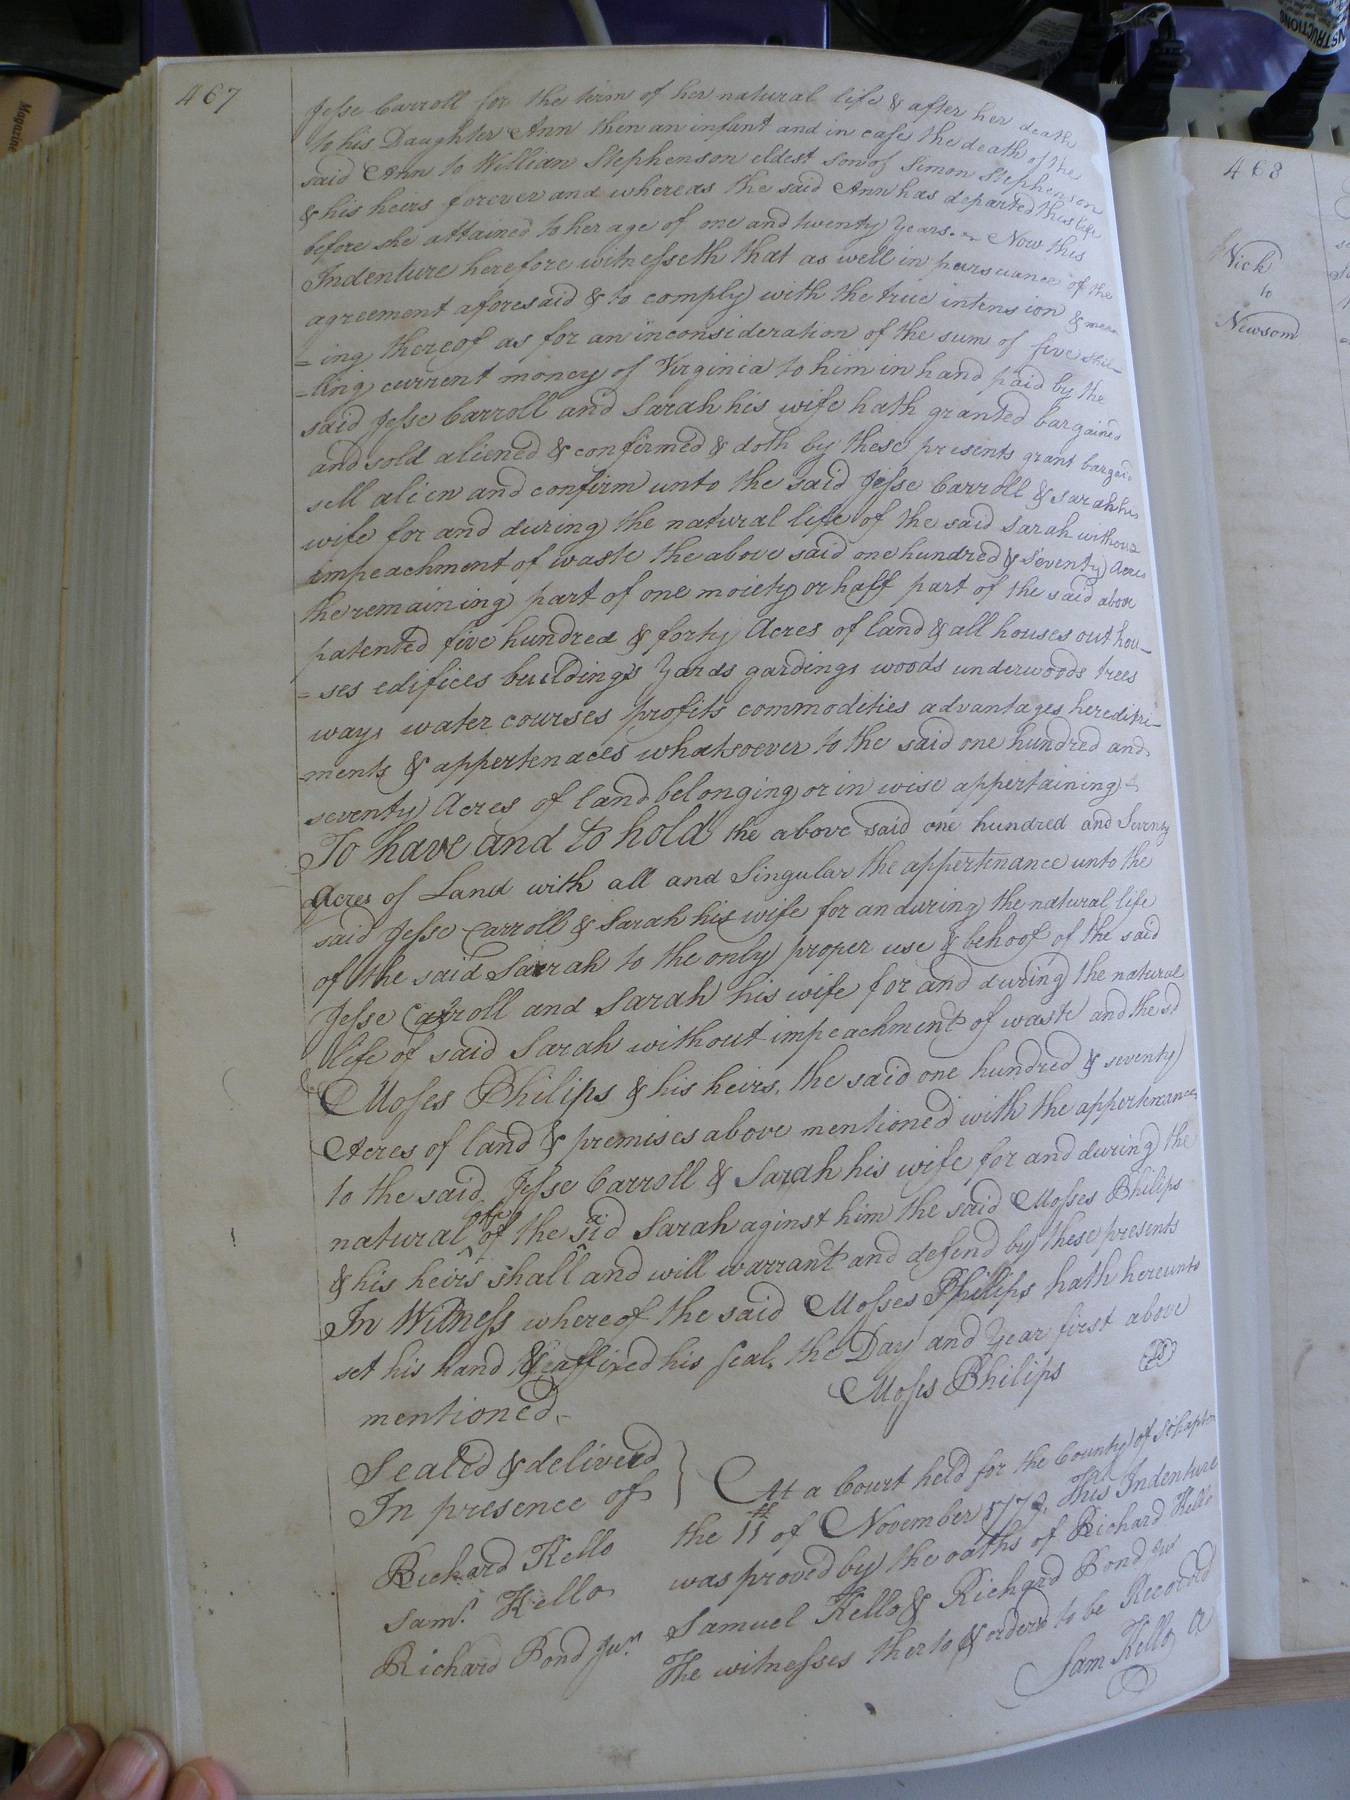 467
Jesse Carroll for the term of her natural life & after her death
to his Daughter Ann then an infant and in case the death of the
said Ann to Willian Stephenson eldest son of Simon Stephenson
& his heirs forever and whereas the said Ann has departed this life
before she attained to her age of one and twenty years. Now this
Indenture herefore witnesseth that as well in persuance of the
agreement aforesaid & to comply with the true intension & mean
=ing thereof as for an inconsideration of the sum of five shil-
-ling current money of Virginia to him in hand paid by the
said Jesse Carroll and Sarah his wife hath granted bargained
and sold aliened & confirmed & doth by these presents grant bargain
sell alien and confirm unto the said Jesse Carroll & Sarah his
wife for and during the natural life of the said Sarah without
impeachment of waste the above said one hundred & seventy Acres
the remaining part of one moiety or half part of the said above
patented five hundred & forty Acres of land & all houses outhou-
=ses edifices buildings yards gardings woods underwoods trees
ways water courses profits commodities advantages hereditri-
-ments & appertenaces whatsoever to the said one hundred and
seventy Acres of land belonging or in wise appertaining
To have and to hold the above said one hundred and Seventy
Acres of Land with all and Singular the appertenance unto the
said Jesse Carroll & Sarah his wife for an during the natural life
of the said Sarah to the only proper use & behoof of the said
Jesse Carroll and Sarah his wife for and during the natural
life of said Sarah without impeachment of waste and the sd
Moses Philips & his heirs, the said one hundred & seventy
Acres of land & premises above mentioned with the appertenances
to the said Jesse Carroll & Sarah his wife for and during the
natural life of the said Sarah aginst him the said Mosses Philips
& his heirs shall and will warrant and defend by these presents
In Witness whereof the said Mosses Philips hath hereunto
set his hand & affixed his seal, the Day and Year first above
mentioned.
Moses Philips
Sealed & deliverd
In presence of
Richard Kello
Saml. Kello
Richard Pond Jur.
At a Court held for the County of Sohapton
the 11th of November 1779. This Indenture
was proved by the oaths of Richard Kello
Samuel Kello & Richard Pond Jur
the witnesses therto & orderd to be Recorded
Sam Kello
468
Vick
to
Newsom
INSTRUCTIONS
Magazine